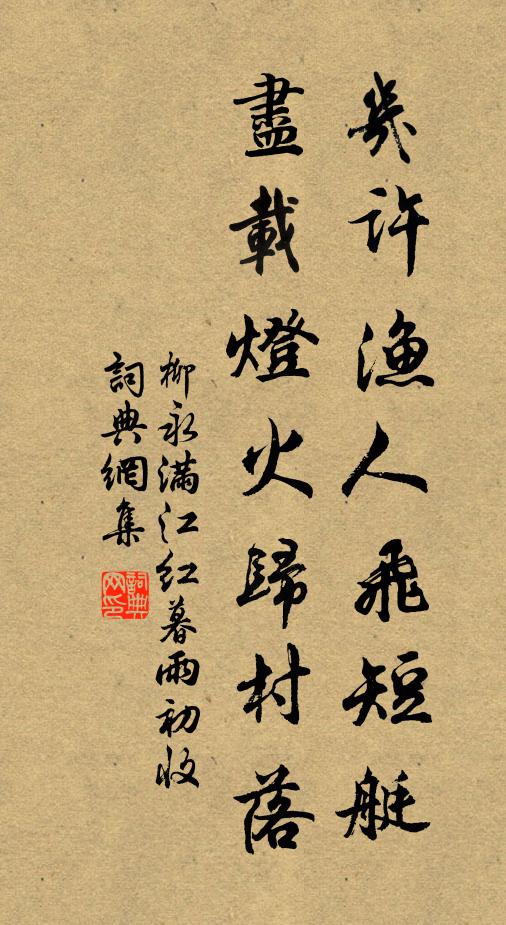 幾許漁人飛短艇
盡載燈火歸村落
柳永滿江紅暮雨初收
詞典網集
詞典網印